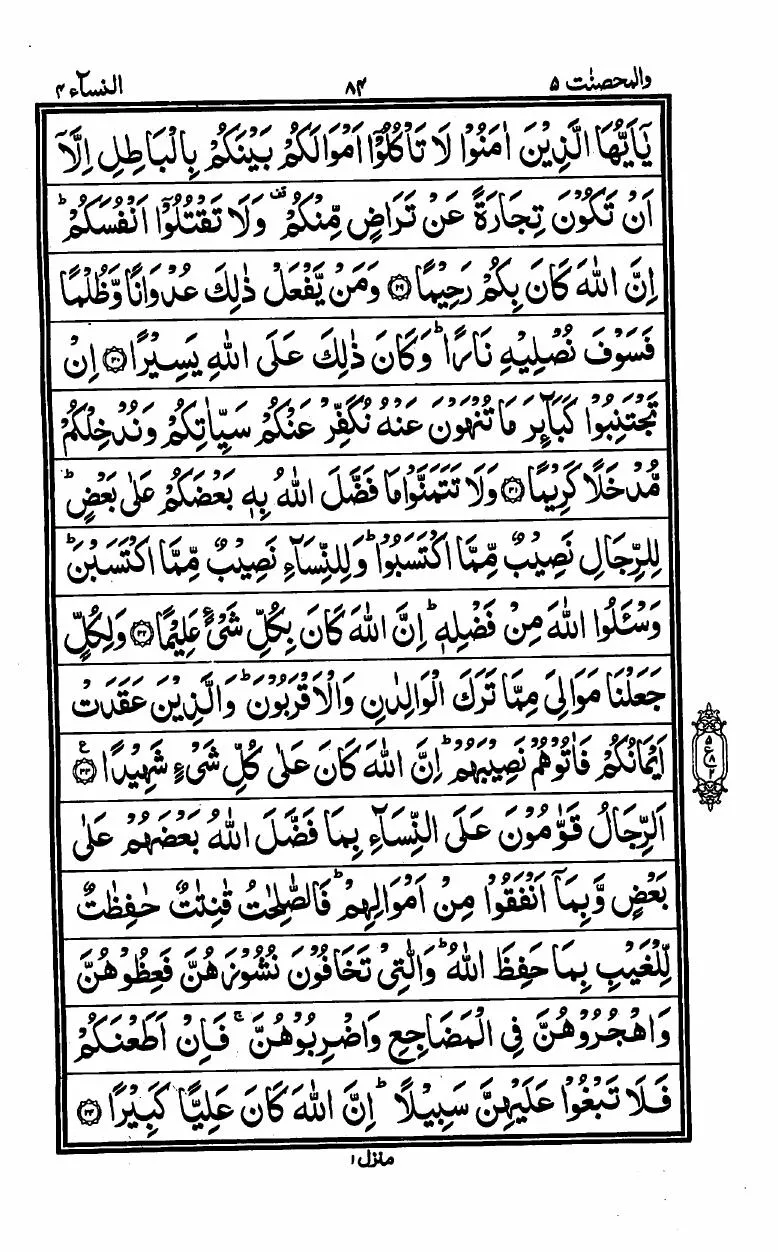 والمحصنٰت ۵ ۸۴ النسآء ۴
يٰۤاَيُّهَا الَّذِيْنَ اٰمَنُوْا لَا تَاْكُلُوْۤا اَمْوَالَكُمْ بَيْنَكُمْ بِالْبَاطِلِ اِلَّاۤ
اَنْ تَكُوْنَ تِجَارَةً عَنْ تَرَاضٍ مِّنْكُمْ ۫ وَلَا تَقْتُلُوْۤا اَنْفُسَكُمْ ؕ
اِنَّ اللّٰهَ كَانَ بِكُمْ رَحِيْمًا ۝۲۹ وَمَنْ يَّفْعَلْ ذٰلِكَ عُدْوَانًا وَّظُلْمًا
فَسَوْفَ نُصْلِيْهِ نَارًا ؕ وَكَانَ ذٰلِكَ عَلَى اللّٰهِ يَسِيْرًا ۝۳۰ اِنْ
تَجْتَنِبُوْا كَبَآئِرَ مَا تُنْهَوْنَ عَنْهُ نُكَفِّرْ عَنْكُمْ سَيِّاٰتِكُمْ وَنُدْخِلْكُمْ
مُّدْخَلًا كَرِيْمًا ۝۳۱ وَلَا تَتَمَنَّوْا مَا فَضَّلَ اللّٰهُ بِهٖ بَعْضَكُمْ عَلٰى بَعْضٍ ؕ
لِلرِّجَالِ نَصِيْبٌ مِّمَّا اكْتَسَبُوْا ؕ وَلِلنِّسَآءِ نَصِيْبٌ مِّمَّا اكْتَسَبْنَ ؕ
وَسْـَٔلُوا اللّٰهَ مِنْ فَضْلِهٖ ؕ اِنَّ اللّٰهَ كَانَ بِكُلِّ شَيْءٍ عَلِيْمًا ۝۳۲ وَلِكُلٍّ
جَعَلْنَا مَوَالِيَ مِمَّا تَرَكَ الْوَالِدٰنِ وَالْاَقْرَبُوْنَ ؕ وَالَّذِيْنَ عَقَدَتْ
اَيْمَانُكُمْ فَاٰتُوْهُمْ نَصِيْبَهُمْ ؕ اِنَّ اللّٰهَ كَانَ عَلٰى كُلِّ شَيْءٍ شَهِيْدًا ۝۳۳ ع
اَلرِّجَالُ قَوّٰمُوْنَ عَلَى النِّسَآءِ بِمَا فَضَّلَ اللّٰهُ بَعْضَهُمْ عَلٰى
بَعْضٍ وَّبِمَاۤ اَنْفَقُوْا مِنْ اَمْوَالِهِمْ ؕ فَالصّٰلِحٰتُ قٰنِتٰتٌ حٰفِظٰتٌ
لِّلْغَيْبِ بِمَا حَفِظَ اللّٰهُ ؕ وَالّٰتِيْ تَخَافُوْنَ نُشُوْزَهُنَّ فَعِظُوْهُنَّ
وَاهْجُرُوْهُنَّ فِي الْمَضَاجِعِ وَاضْرِبُوْهُنَّ ۚ فَاِنْ اَطَعْنَكُمْ
فَلَا تَبْغُوْا عَلَيْهِنَّ سَبِيْلًا ؕ اِنَّ اللّٰهَ كَانَ عَلِيًّا كَبِيْرًا ۝۳۴
۵
ع ۸
۲
منزل ۱